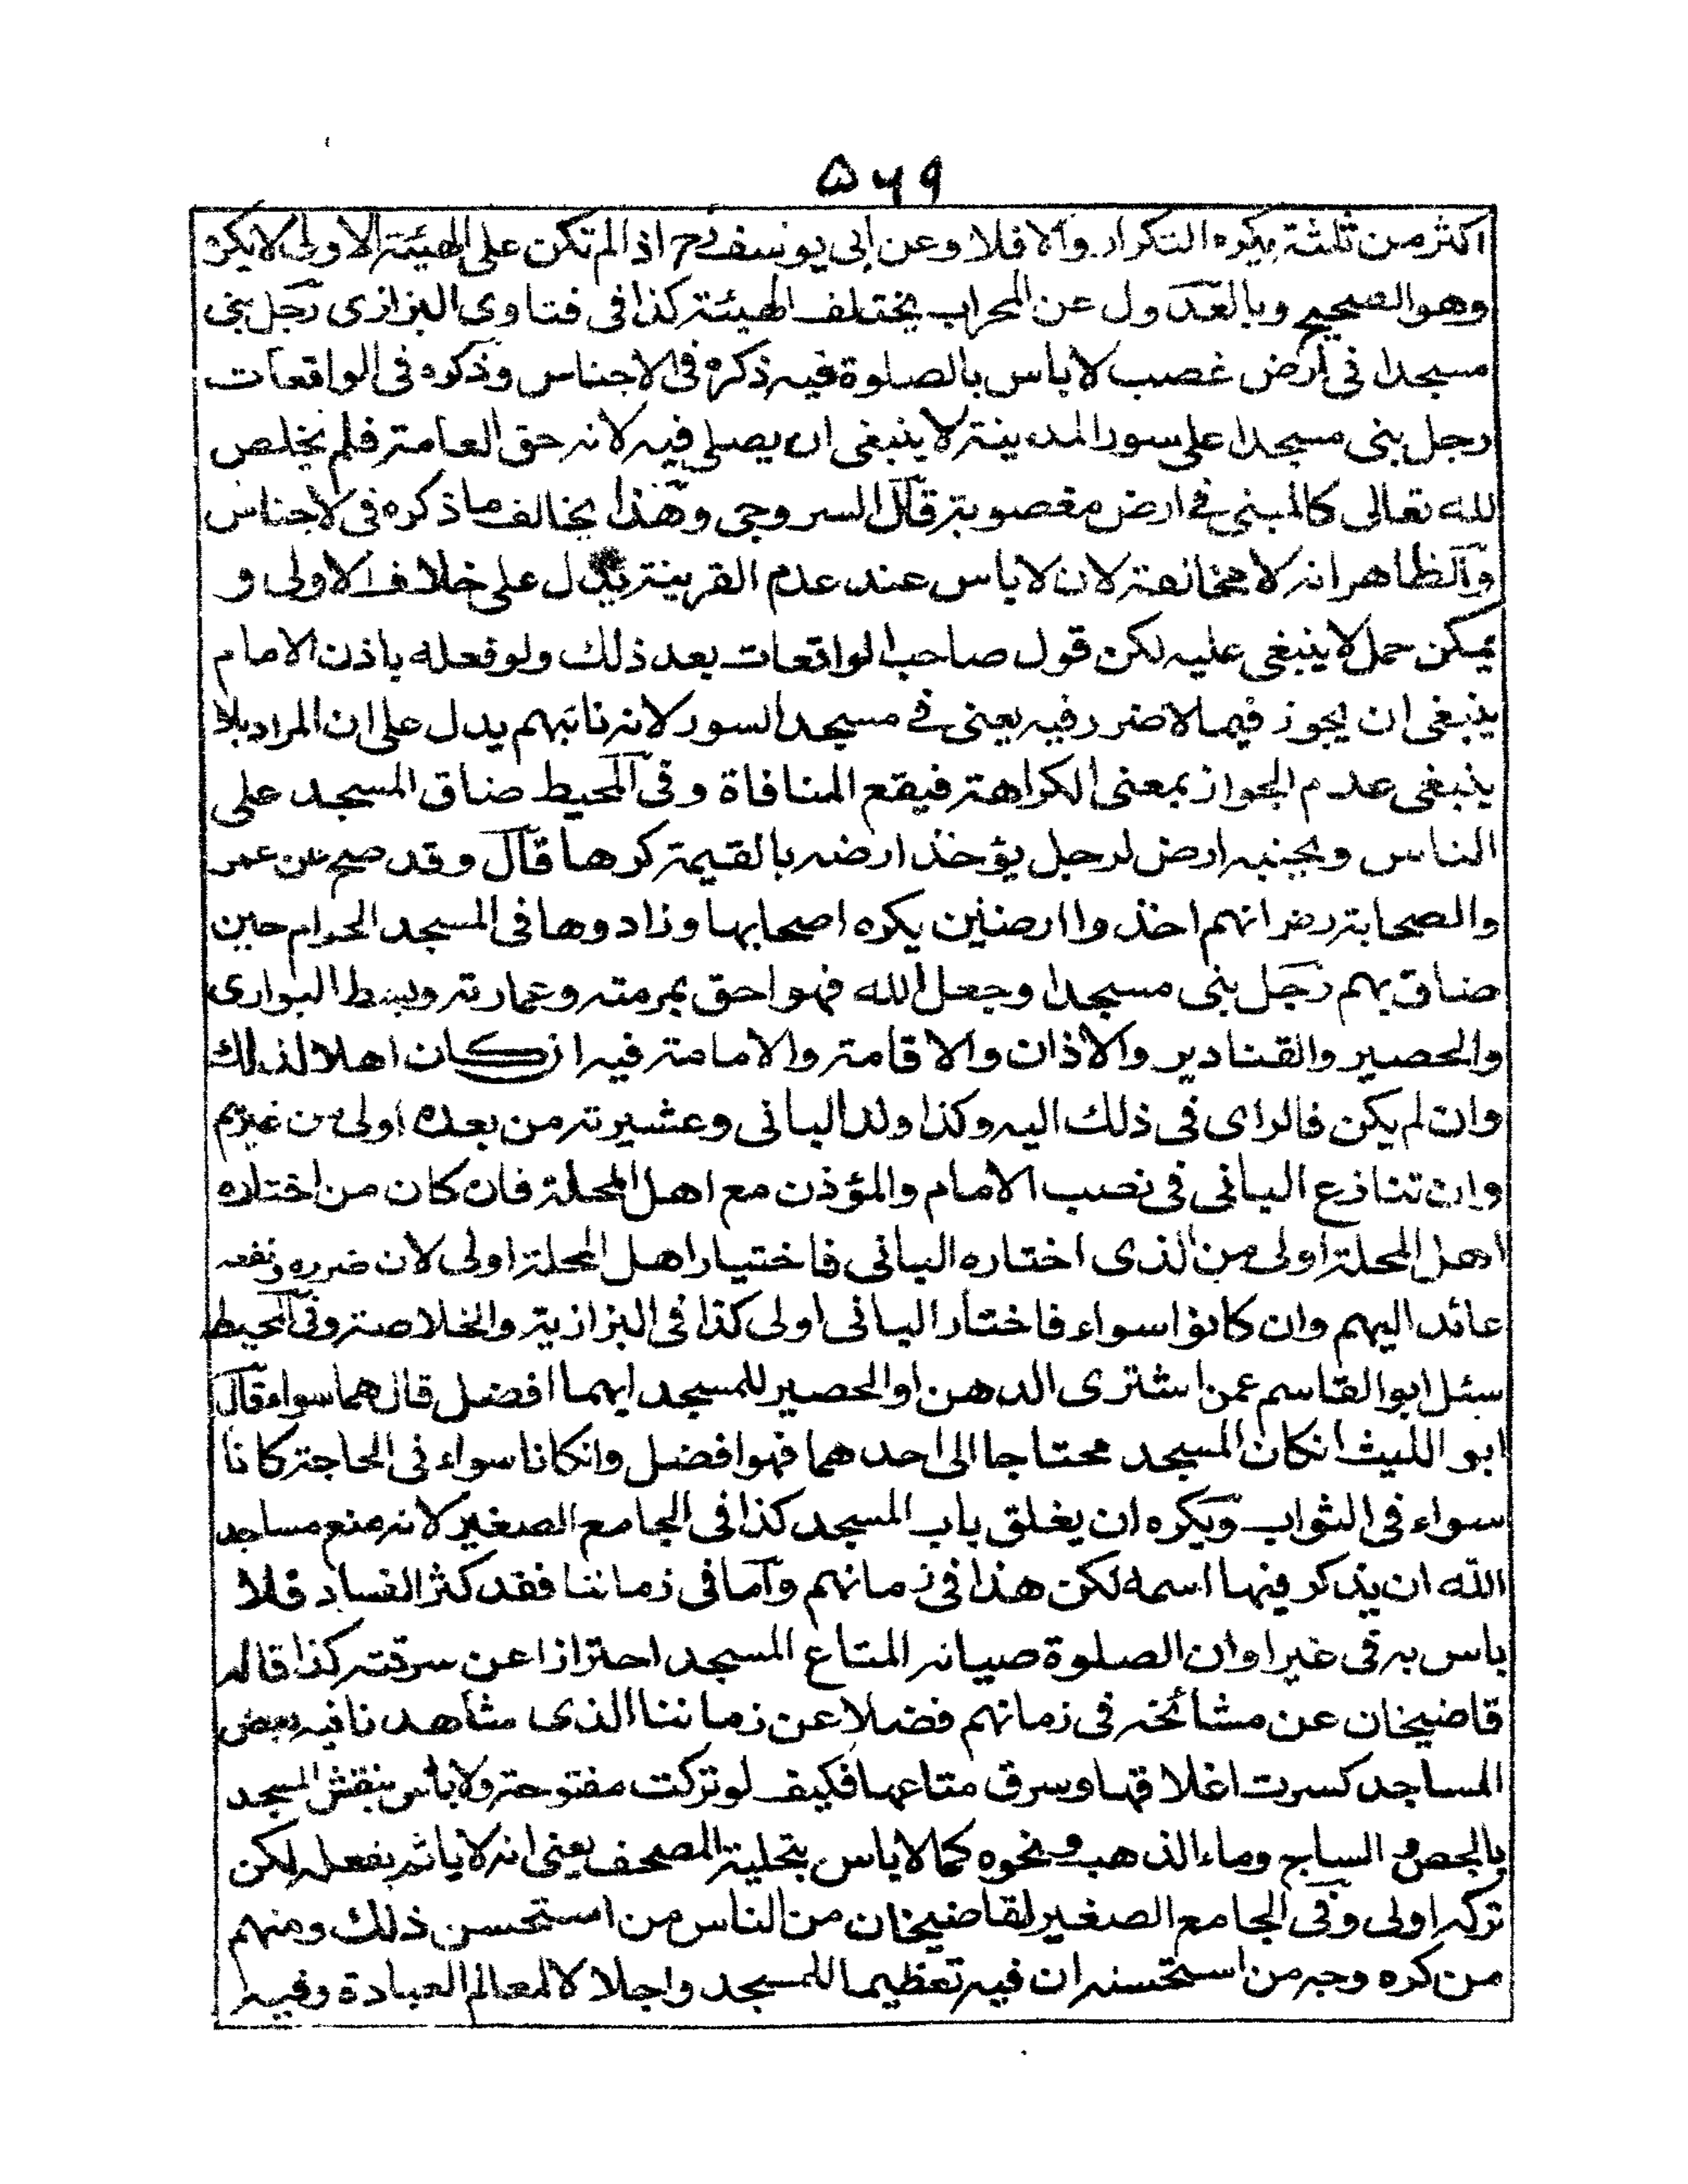 ۵۶۹
اكثر من ثلثة يكره التكرار والا فلا وعن ابى يوسف رح اذا لم تكن على الهيئة الاولى لا يكره
وهو الصحيح وبالعدول عن المحراب يختلف الهيئة كذا فى فتاوى البزازى رجل بنى
مسجدا فى ارض غصب لا باس بالصلوة فيه ذكره فى الاجناس وذكره فى الواقعات
رجل بنى مسجدا على سور المدينة لا ينبغى ان يصلى فيه لانه حق العامة فلم يخلص
لله تعالى كالمبنى فى ارض مغصوبة قال السروجى وهذا يخالف ما ذكره فى لاجناس
والظاهر انه لا مخالفة لان لا باس عند عدم القرينة يدل على خلاف الاولى و
يمكن حمل لا ينبغى عليه لكن قول صاحب الواقعات بعد ذلك ولو فعله باذن الامام
ينبغى ان يجوز فيما لا ضرر فيه يعنى فى مسجد السور لانه نائبهم يدل على ان المراد بلا
ينبغى عدم الجواز بمعنى الكراهة فيقع المنافاة وفى المحيط ضاق المسجد على
الناس وبجنبه ارض لرجل يؤخذ ارضه بالقيمة كرها قال وقد صح عن عمر
والصحابة رض انهم اخذوا ارضين يكره اصحابها وزادوها فى المسجد الحرام حين
ضاق بهم رجل بنى مسجدا وجعل لله فهو احق بمرمته وعمارته وبسط البوارى
والحصير والقنادير والاذان والاقامة والامامة فيه ان كان اهلا لذلك
وان لم يكن فالراى فى ذلك اليه وكذا ولد البانى وعشيرته من بعده اولى من غيرهم
وان تنازع البانى فى نصب الامام والمؤذن مع اهل المحلة فان كان من اختاره
اهل المحلة اولى من الذى اختاره البانى فاختيار اهل المحلة اولى لان ضرره ونفعه
عائد اليهم وان كانوا سواء فاختار البانى اولى كذا فى البزازية والخلاصة وفى المحيط
سئل ابو القاسم عمن اشترى الدهن او الحصير للمسجد ايهما افضل قال هما سواء قال
ابو الليث انكان المسجد محتاجا الى احدهما فهو افضل وانكانا سواء فى الحاجة كانا
سواء فى الثواب ويكره ان يغلق باب المسجد كذا فى الجامع الصغير لانه منع مساجد
الله ان يذكر فيها اسمه لكن هذا فى زمانهم واما فى زماننا فقد كثر الفساد فلا
باس به فى غير اوان الصلوة صيانه المتاع المسجد احترازا عن سرقته كذا قاله
قاضيخان عن مشائخه فى زمانهم فضلا عن زماننا الذى شاهدنا فيه بعض
المساجد كسرت اغلاقها وسرق متاعها فكيف لو تركت مفتوحة ولا باس بنقش المسجد
بالجص و الساج وماء الذهب ونحوه كما لا باس بتحلية المصحف يعنى انه لا ياثم بفعله لكن
تركه اولى وفى الجامع الصغير لقاضيخان من الناس من استحسن ذلك ومنهم
من كره وجه من استحسنه ان فيه تعظيما للمسجد واجلالا لمعالم العبادة وفيه